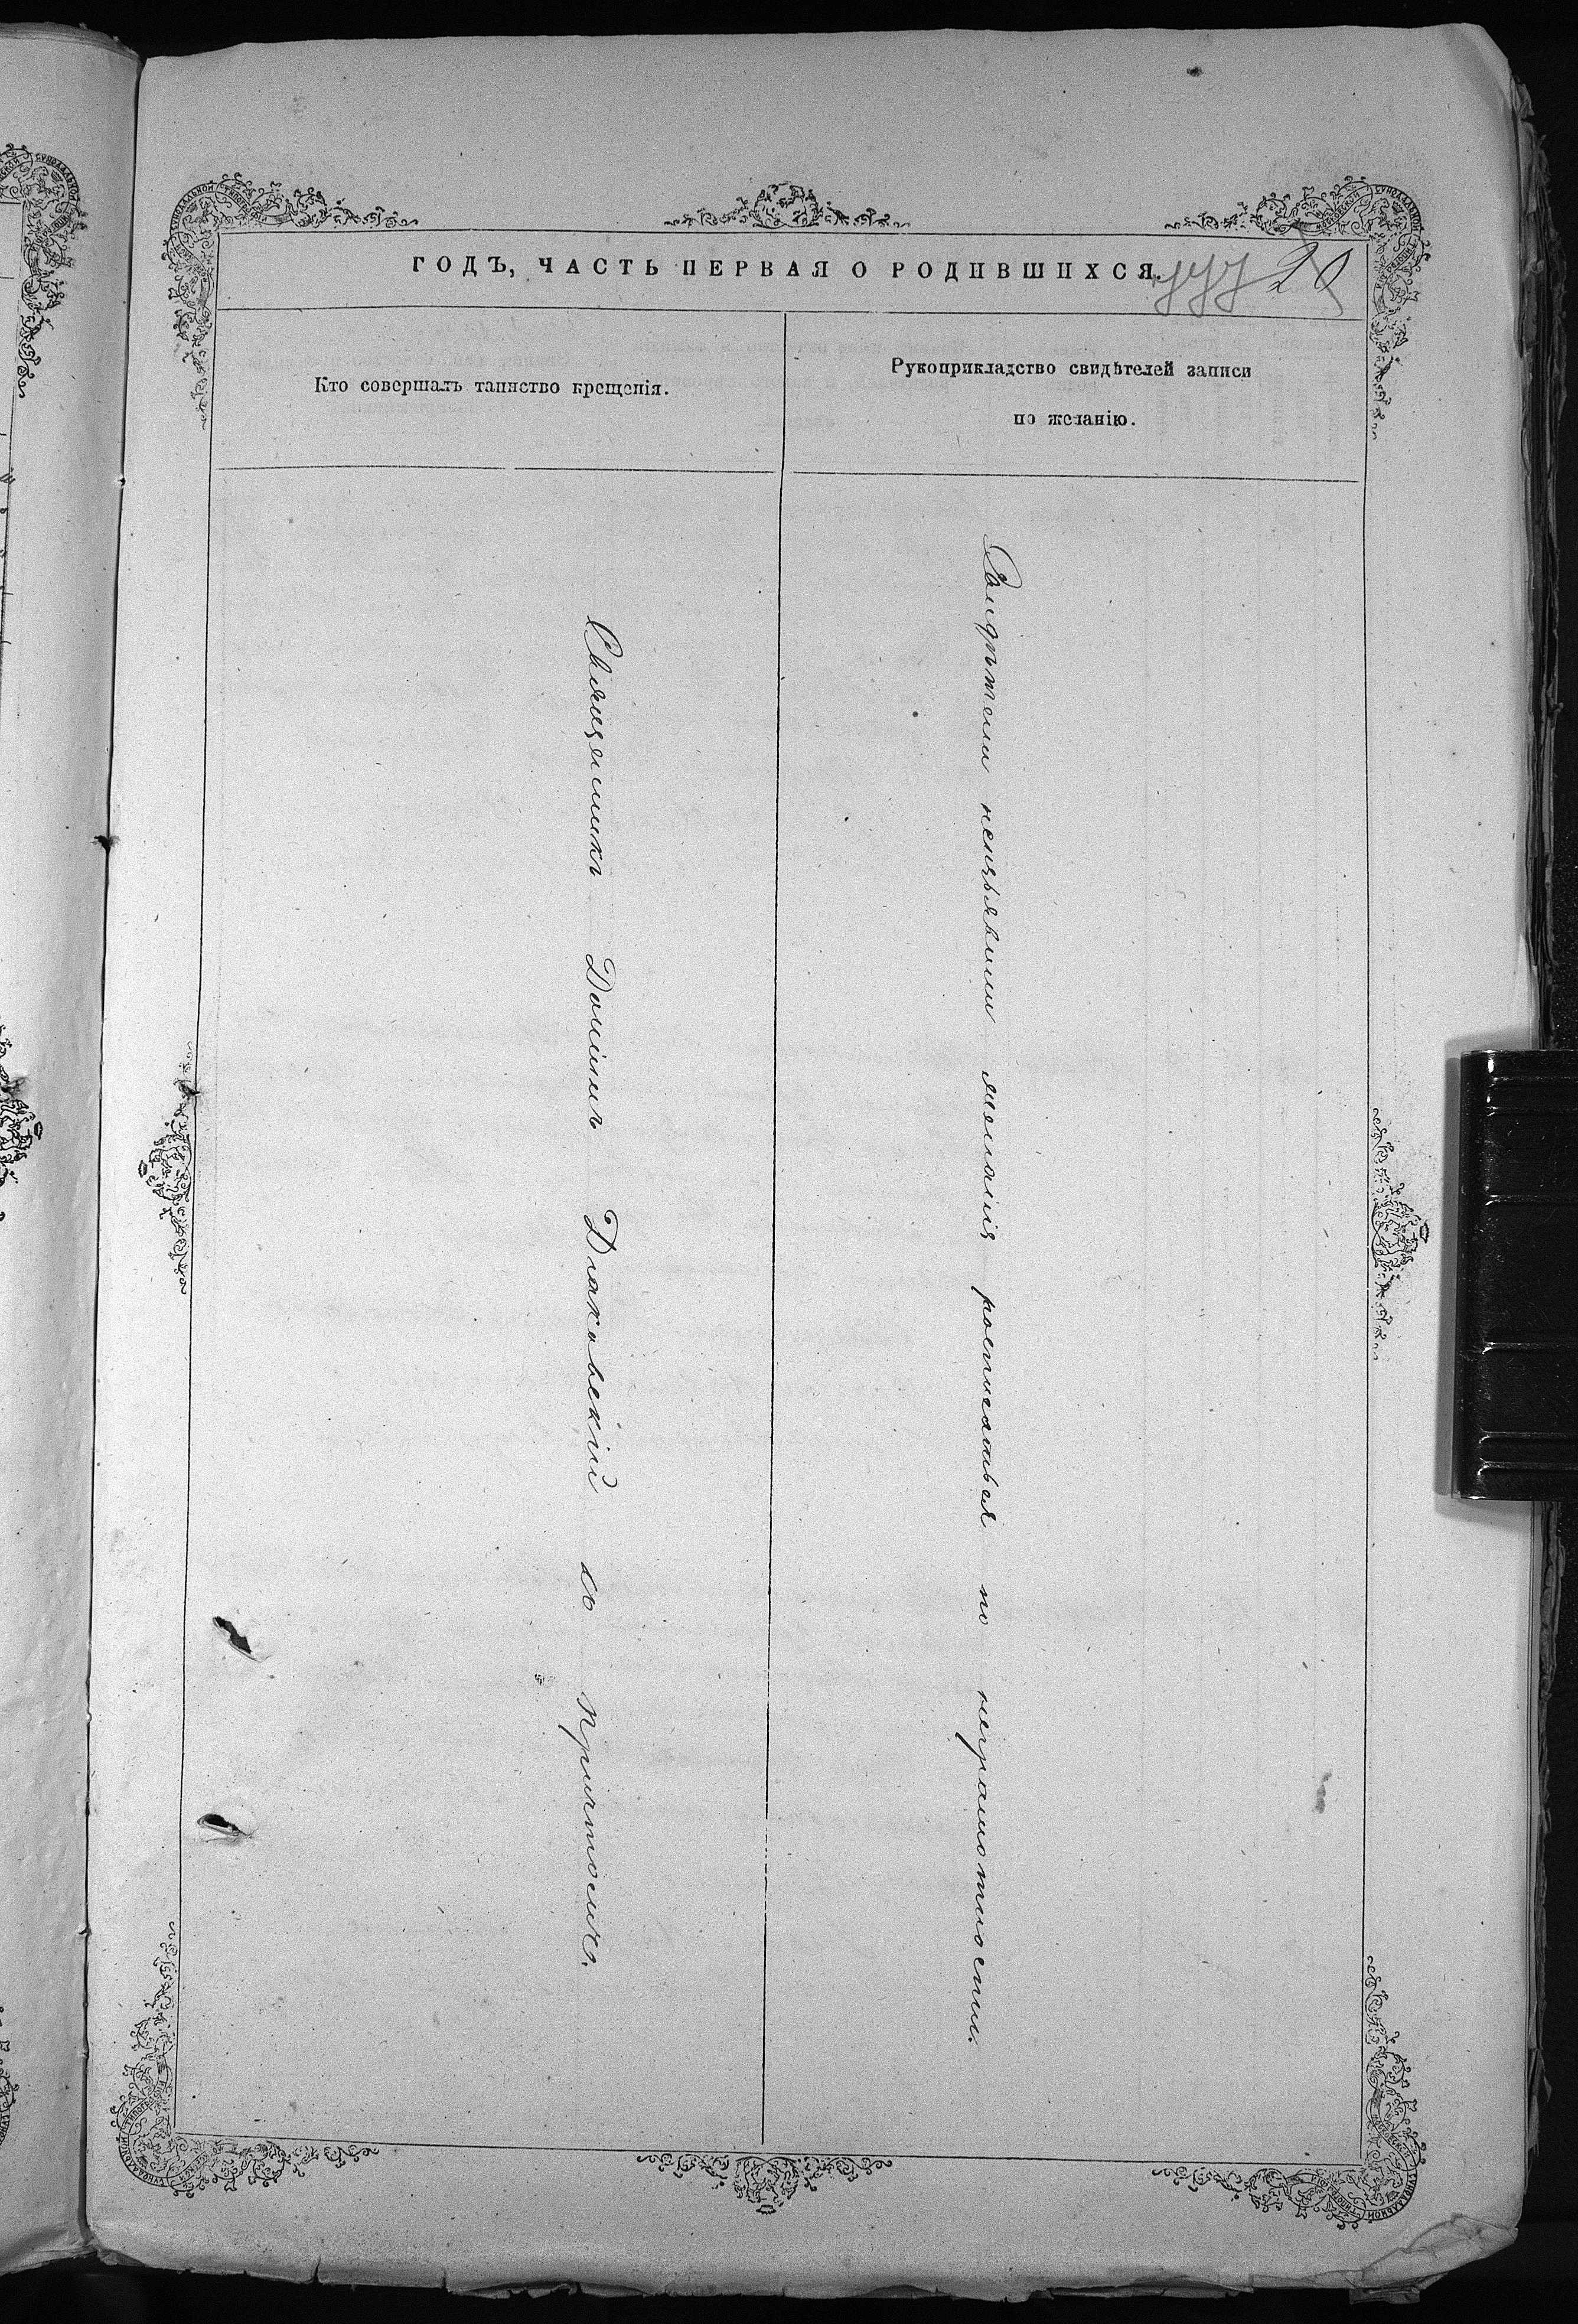 ГОДЪ, ЧАСТЬ ПЕРВАЯ О РОДИВШИХСЯ.
20
Кто совершалъ таинство крещенія.
Рукоприкладство свидѣтелей записи
по желанію.
Священникъ Даміанъ Діаковскій со причтомъ.
Свидѣтели неизъявили желанія росписаться по неграмотности.